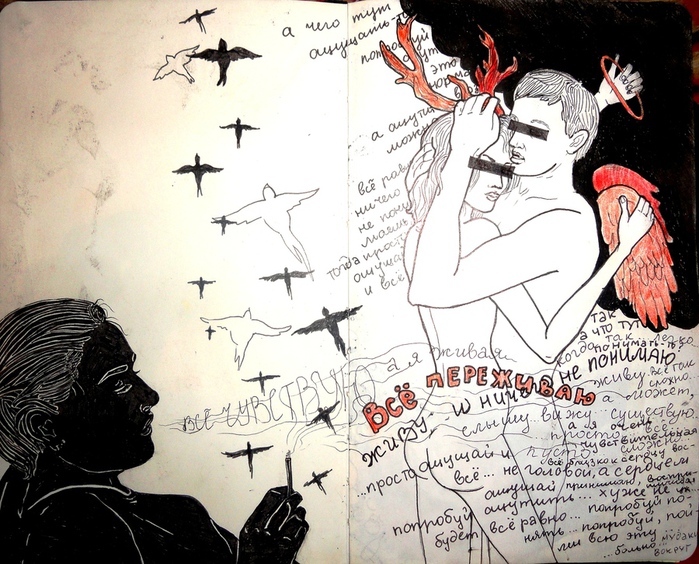 а чего тут
ощущать-то
попробуй
это
а ощути
можно
всё равно
ничего
не пони
маешь
тогда просто
ощущай
и всё
так
а что тут
понимать-то
а я живая...
всё чувствую
ВСЁ ПЕРЕЖИВАЮ
живу и ничего не понимаю
живу всё так
сложно
а может,
слышу вижу... существую
а я очень
просто всё
чувствительная
...просто ощущай и пусто
всё близко к сердцу вос
всё... не головой, а сердцем
ощущай принимаю,
попробуй ощутить... хуже не
будет всё равно... попробуй по-
нять... попробуй, пой-
ми всю эту
...больно...
мудаки
вокруг